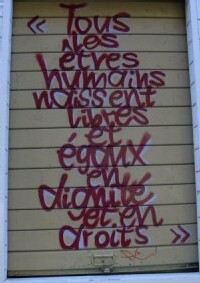 « Tous
les
êtres
humains
naissent
libres
et
égaux
en
dignité
et en
droits »